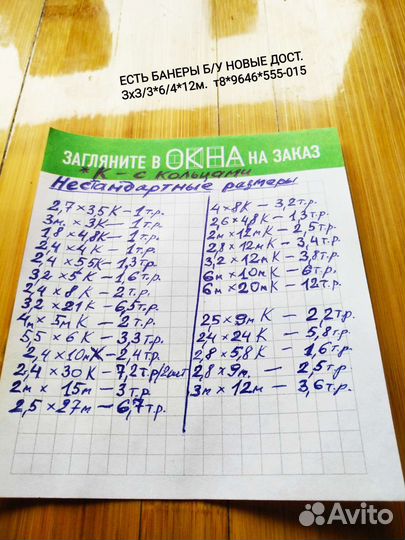 ЕСТЬ БАНЕРЫ Б/У НОВЫЕ ДОСТ.
3х3/3*6/4*12м. т8*9646*555-015
ЗАГЛЯНИТЕ В ОКНА НА ЗАКАЗ
*К - с кольцами
Нестандартные размеры
2,7 x 3,5 К — 1 т.р.
3м x 3К — 1 т.р.
1,8 x 4,8К — 1 т.р.
2,4 x 4 К — 1 т.р.
2,4 x 5,5К — 1,3 т.р.
3,2 x 5 К — 1,6 т.р.
2,4 x 8 К — 2 т.р.
3,2 x 21 К — 6,5 т.р.
4м x 5м К — 2 т.р.
5,5 x 6 К — 3,3 т.р.
2,4 x 10м К — 2,4 т.р.
2,4 x 30 К — 7,2 т.р/2шт
2м x 15м — 3 т.р.
2,5 x 27м — 6,7 т.р.
4 x 8К — 3,2 т.р.
2,6 x 4,8К — 1,3 т.р.
2м x 12м К — 2,5 т.р.
2,8 x 12м К — 3,4 т.р.
3,2 x 12м К — 3,8 т.р.
6м x 10м К — 6 т.р.
6м x 20м К — 12 т.р.
2,5 x 9м К — 2,2 т.р.
2,4 x 24 К — 5,8 т.р.
2,8 x 5,8 К — 1,6 т.р.
2,8 x 9м. — 2,5 т.р
3м x 12м — 3,6 т.р.
Avito